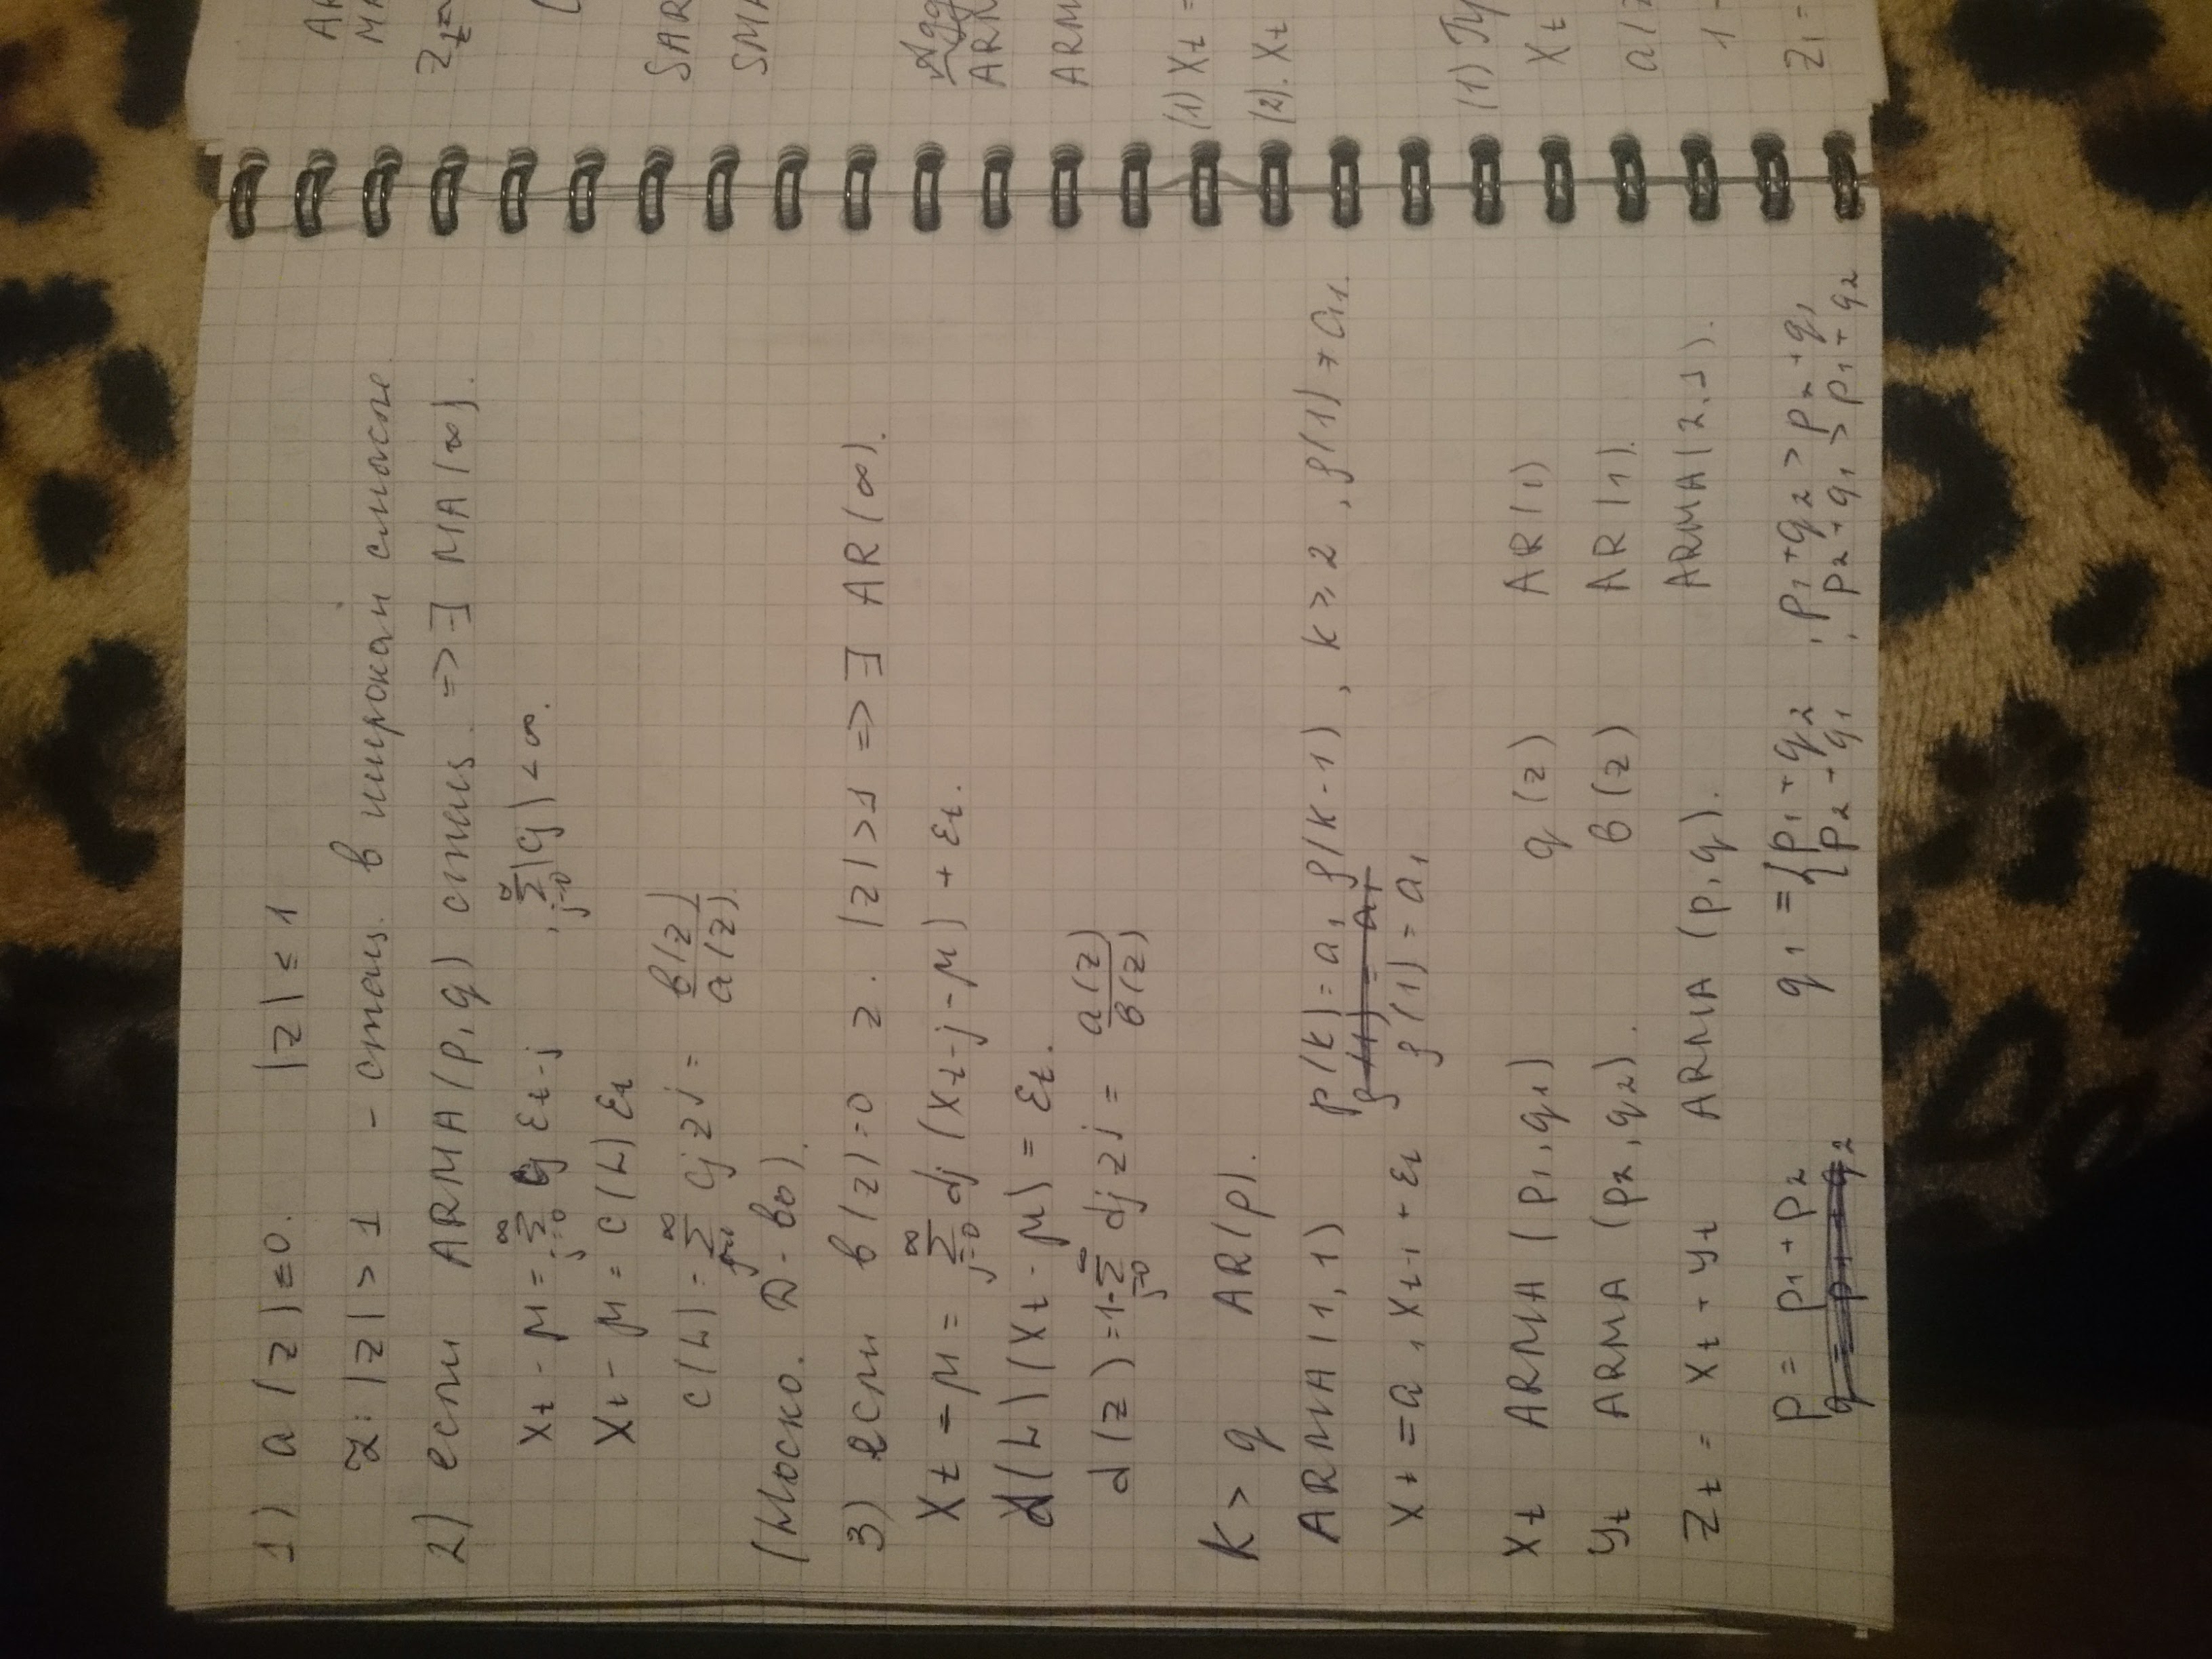 1) a(z)=0. |z| ≤ 1
z: |z| > 1 - стац. в широком смысле
2) если ARMA(p,q) стац. => ∃ MA(∞).
Xt - μ = ∞Σj=0 cj εt-j , ∞Σj=0 |cj| < ∞.
Xt - μ = c(L) εt
c(L) = ∞Σ cj zj = b(z)/a(z).
D-во).
3) если b(z)=0 z. |z|>1 => ∃ AR(∞).
Xt - μ = ∞Σj=0 dj (Xt-j - μ) + εt.
d(L)(Xt - μ) = εt.
d(z) = 1-∞Σj=0 dj zj = a(z)/b(z)
k > q AR(p).
ARMA(1,1) ρ(k) = a1 ρ(k-1), k ≥ 2, ρ(1) ≠ a1.
Xt = a1 Xt-1 + εt ρ(1) = a1
Xt ARMA (p1, q1) a(z) AR(1)
yt ARMA (p2, q2). b(z) AR(1).
Zt = Xt + yt ARMA (p,q). ARMA(2,1).
p = p1 + p2 q1 = { p1 + q2 , p1 + q2 > p2 + q1
q = p1 + q2 p2 + q1 , p2 + q1 > p1 + q2
AR
MA
Zt=
SAR
SMA
ARM
ARM
(1) Xt =
(2). Xt
(1)
Xt
a(z
1 -
z1 =